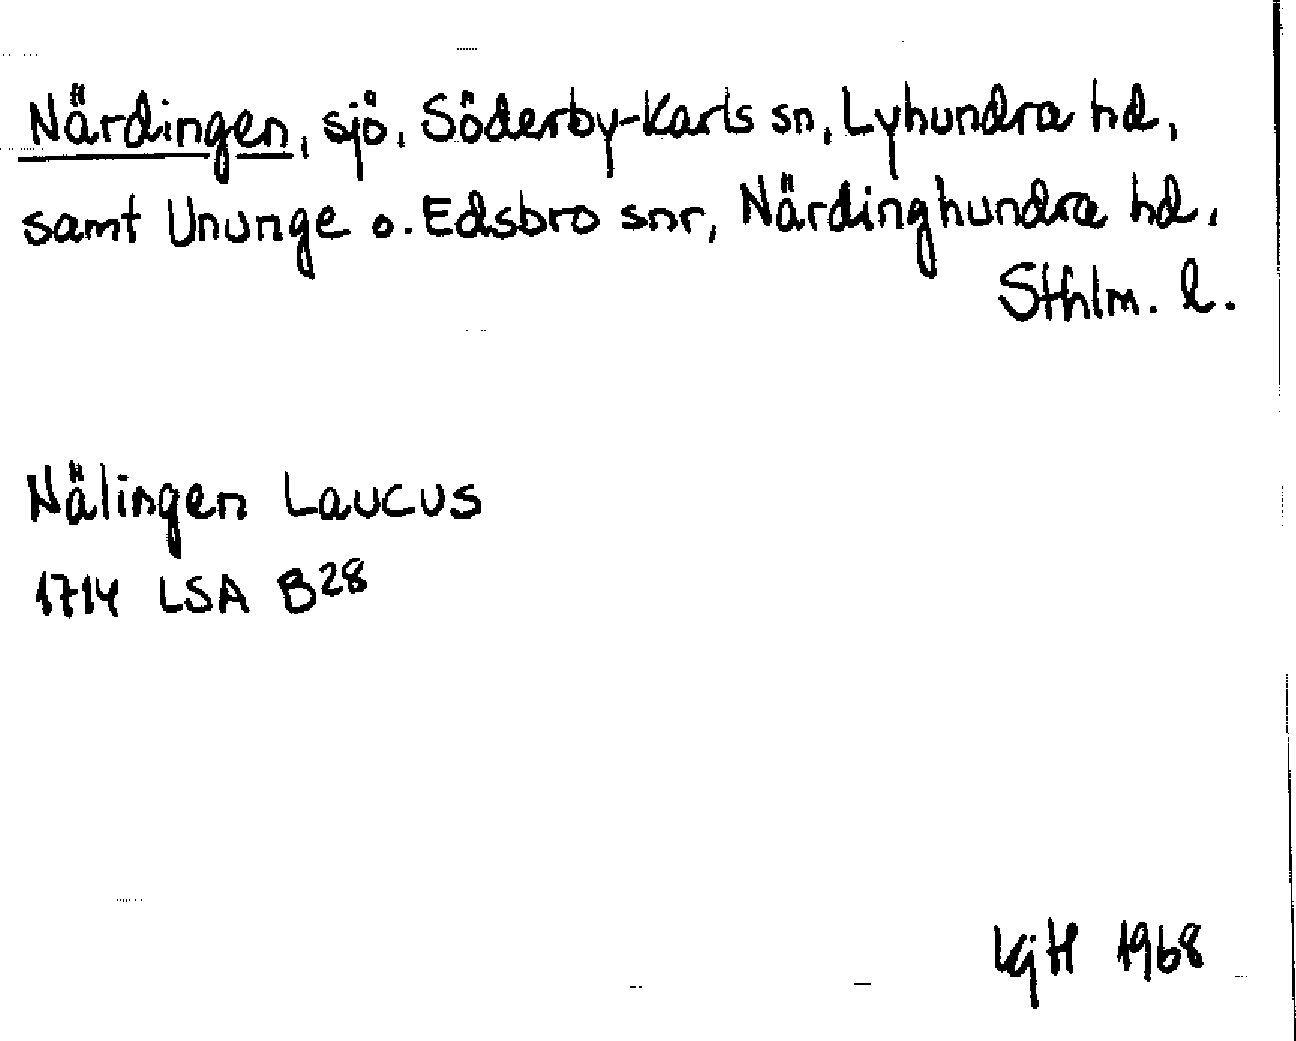 Närdingen, sjö, Söderby-Karls sn, Lyhundra hd,
samt Ununge o. Edsbro snr, Närdinghundra hd.
Sthlm. l.
Nälingen Laucus
1714 LSA B28
KjH 1968